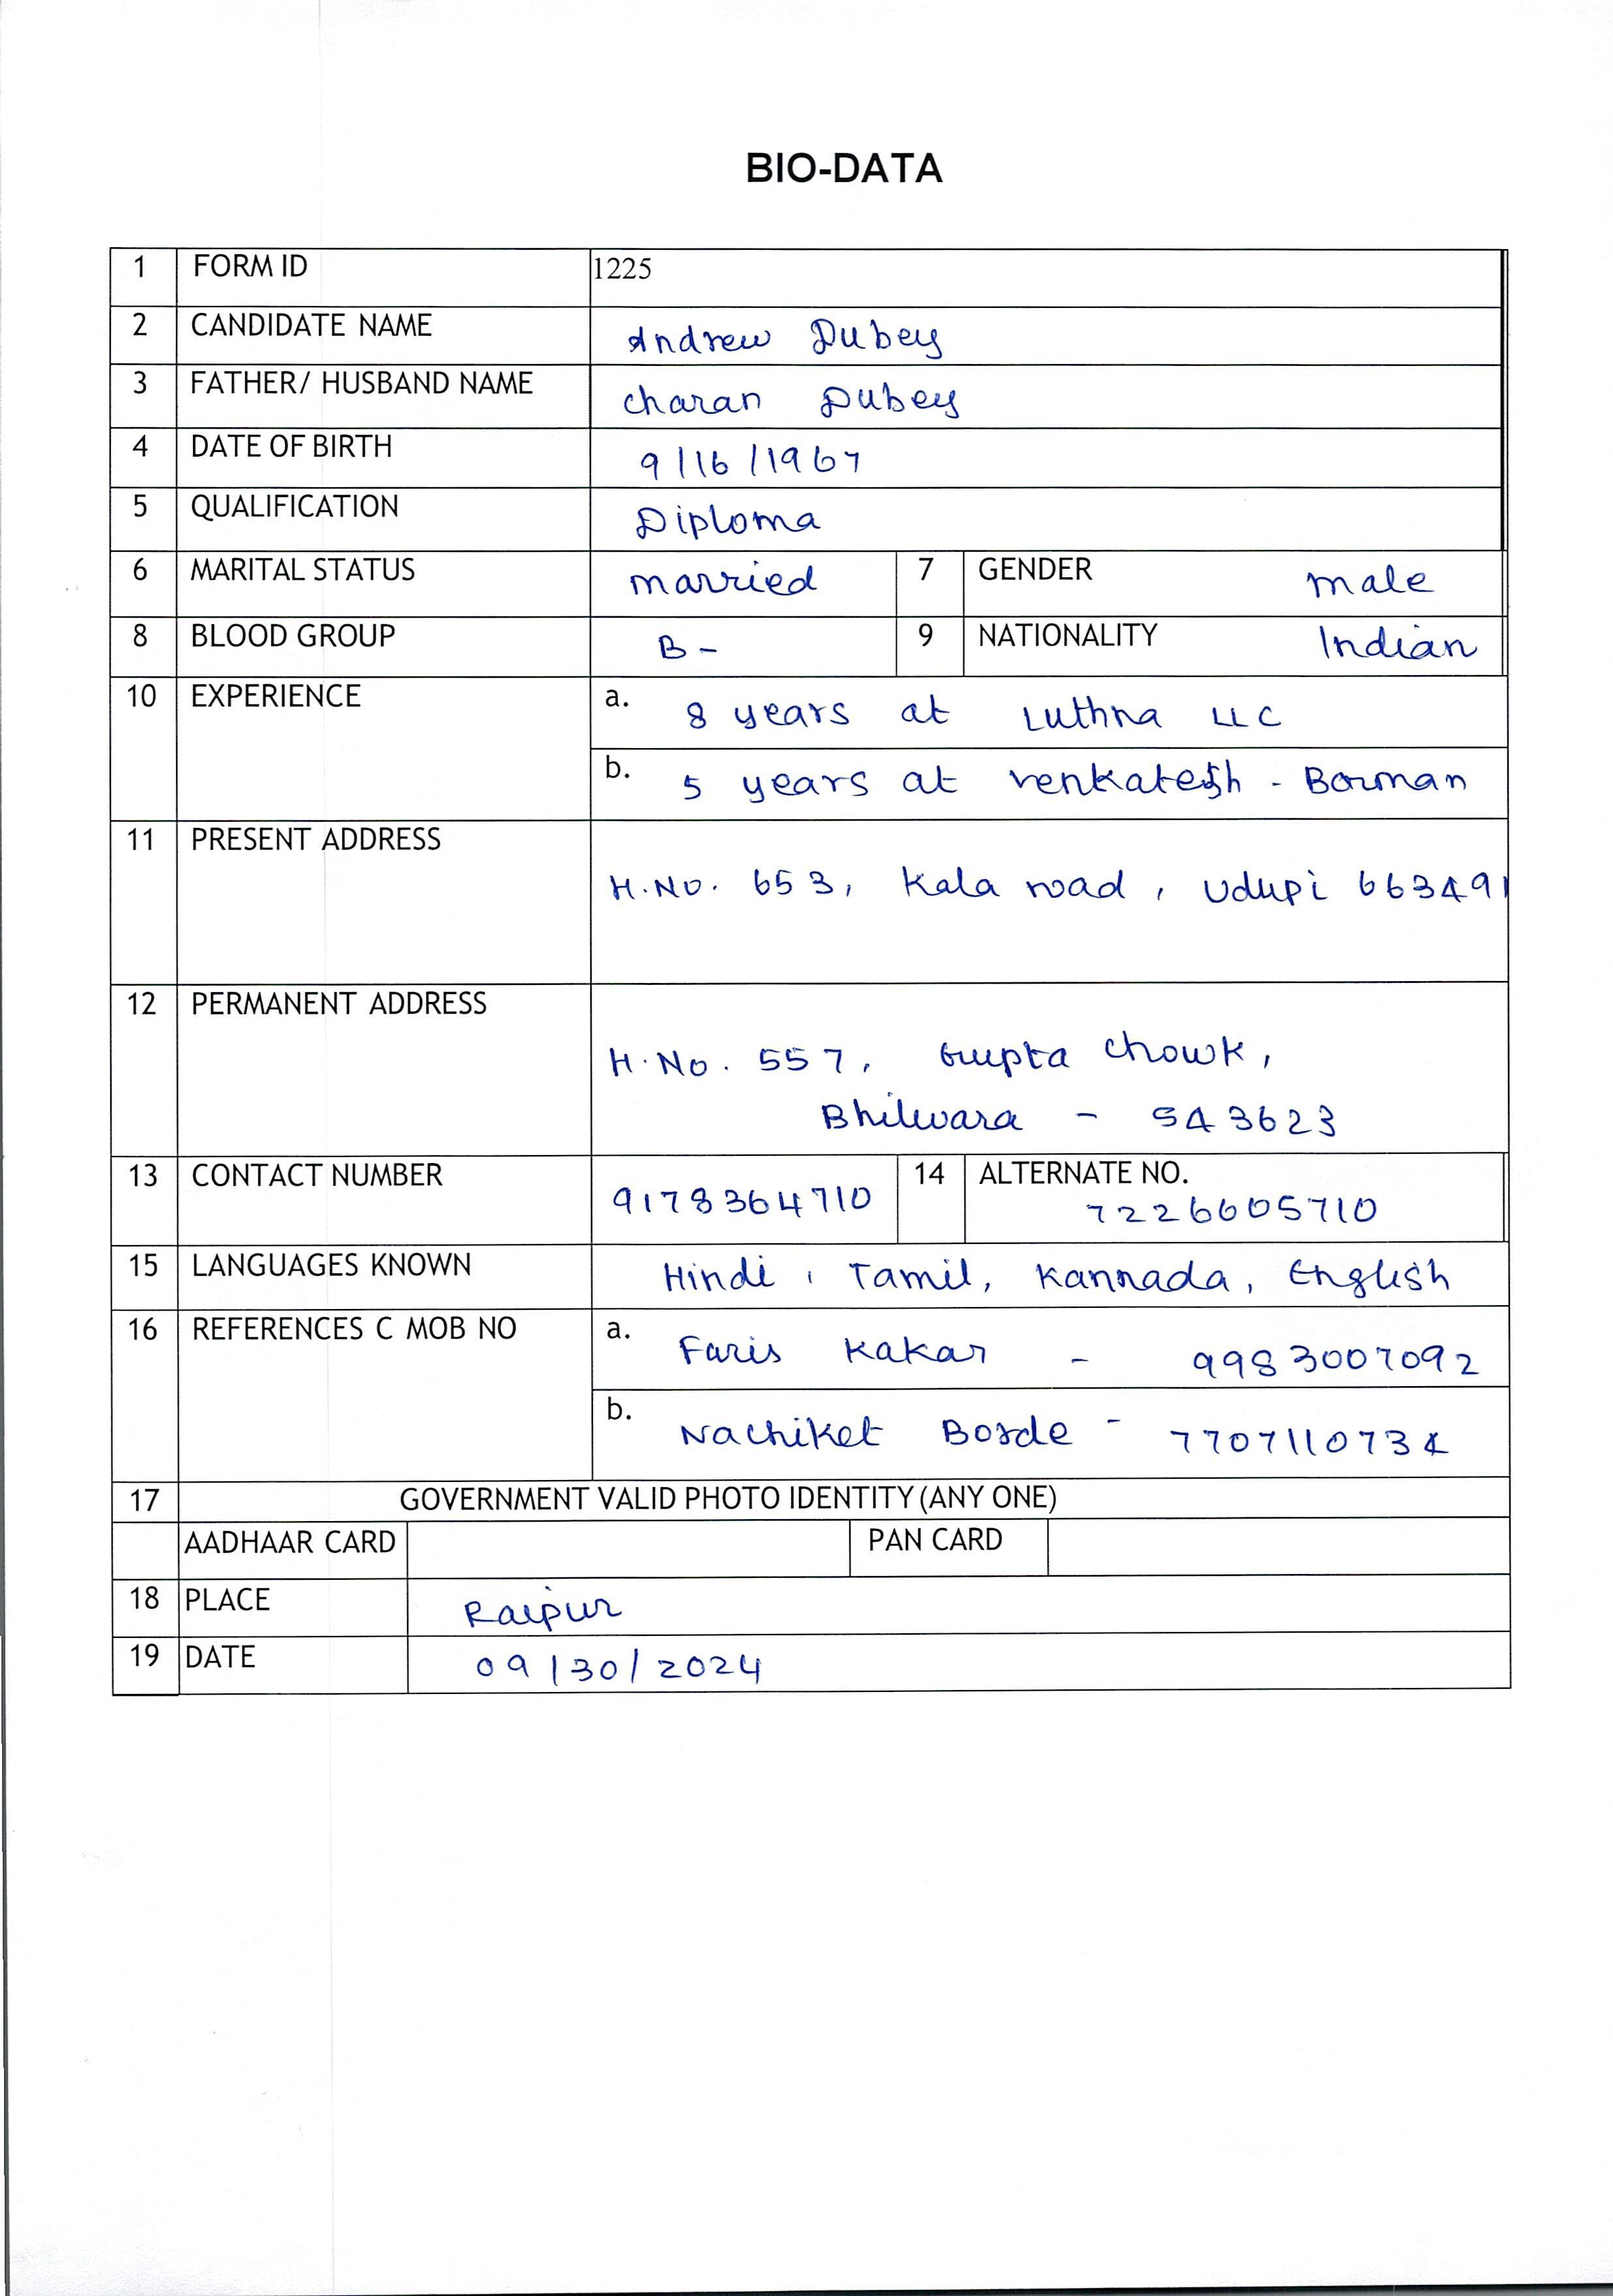 BIO-DATA
1 FORM ID 1225
2 CANDIDATE NAME Andrew Dubey
3 FATHER/ HUSBAND NAME Charan Dubey
4 DATE OF BIRTH 9/16/1967
5 QUALIFICATION Diploma
6 MARITAL STATUS married 7 GENDER male
8 BLOOD GROUP B- 9 NATIONALITY Indian
10 EXPERIENCE a. 8 years at Luthra LLC
b. 5 years at Venkatesh - Barman
11 PRESENT ADDRESS
H.No. 653, Kala road, Udupi 663491
12 PERMANENT ADDRESS
H.No. 557, Gupta Chowk,
Bhilwara - 543623
13 CONTACT NUMBER 9178364710 14 ALTERNATE NO.
7226605710
15 LANGUAGES KNOWN Hindi, Tamil, Kannada, English
16 REFERENCES C MOB NO a. Faris Kakar - 9983007092
b. Nachiket Borde - 7707110734
17 GOVERNMENT VALID PHOTO IDENTITY (ANY ONE)
AADHAAR CARD PAN CARD
18 PLACE Raipur
19 DATE 09/30/2024